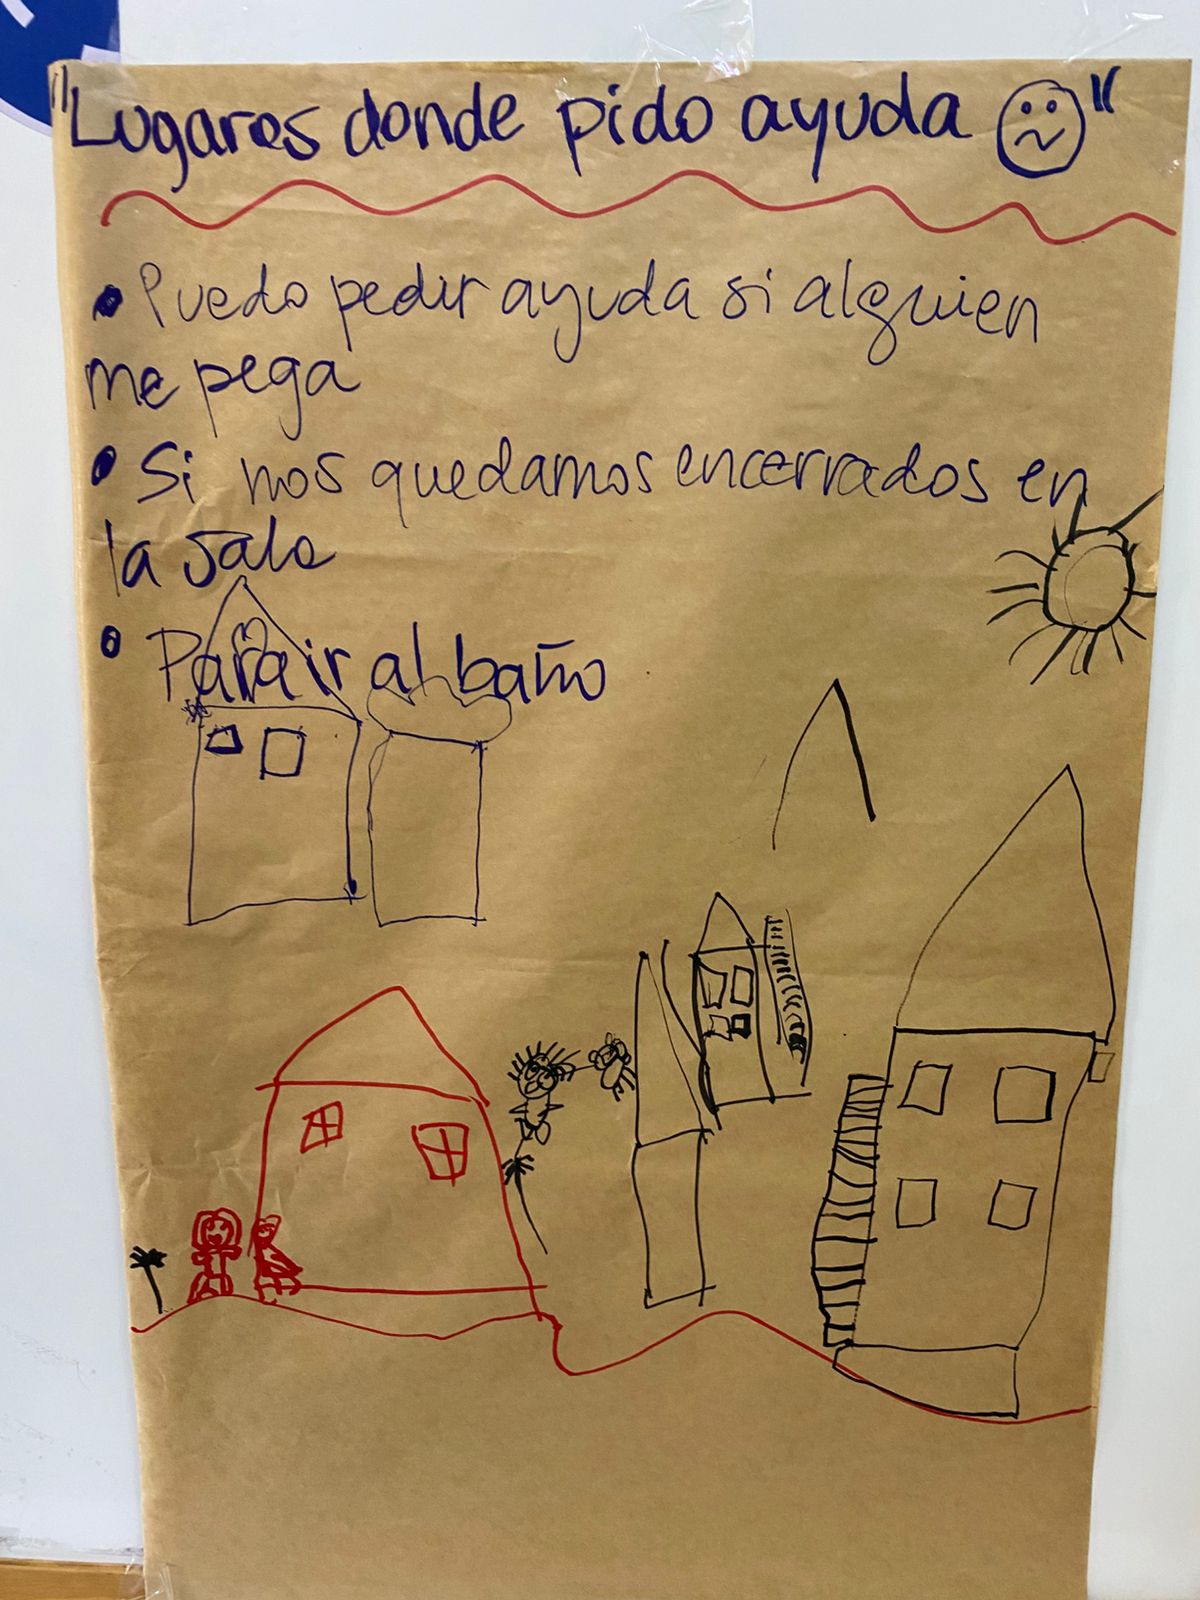 "Lugares donde pido ayuda"
• Puedo pedir ayuda si alguien
me pega
• Si nos quedamos encerrados en
la sala
• Para ir al baño